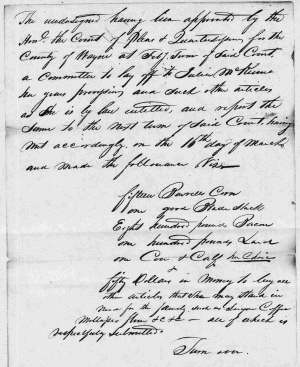 The undersigned having been appointed by the
Honl. the Court of Pleas & Quarter Sessions for the
County of Wayne at Feby. Term of said Court,
a Committee to lay off to
her years provisions and such other articles
as she is by law entitled, and report the
same to the next term of said Court, having
met accordingly, on the 16th day of March
and made the following Viz
fifteen Barrels Corn
one good
Eight hundred pounds Bacon
one hundred pounds Lard
one Cow & Calf
fifty Dollars in Money to buy all
other articles that she may stand in
need for the family such as Sugar Coffee
Molasses flour &c &c — all of which is
respectfully submitted
Turn over.